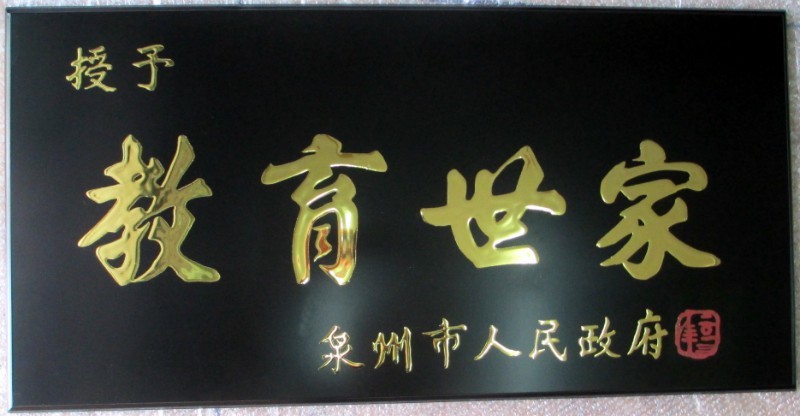 授予
教育世家
泉州市人民政府